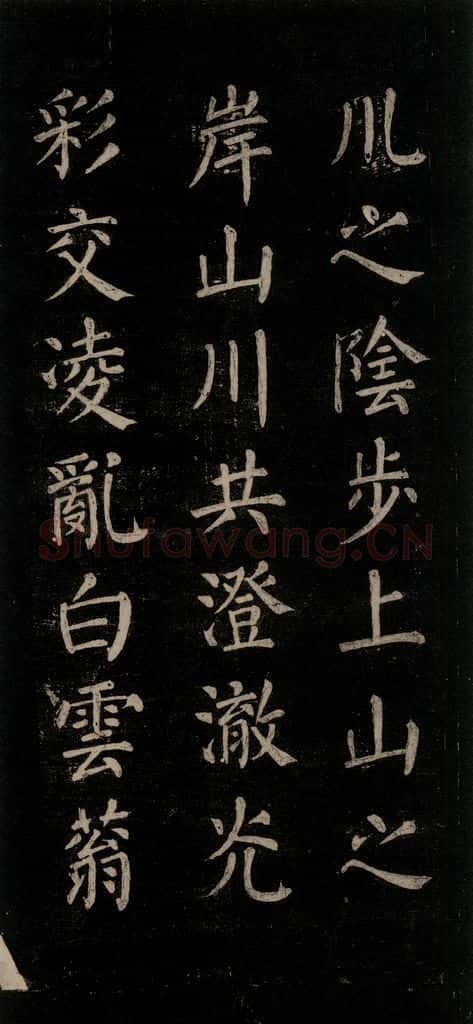 川之陰步上山之
岸山川共澄澈光
彩交凌亂白雲蓊
Shufawang.CN